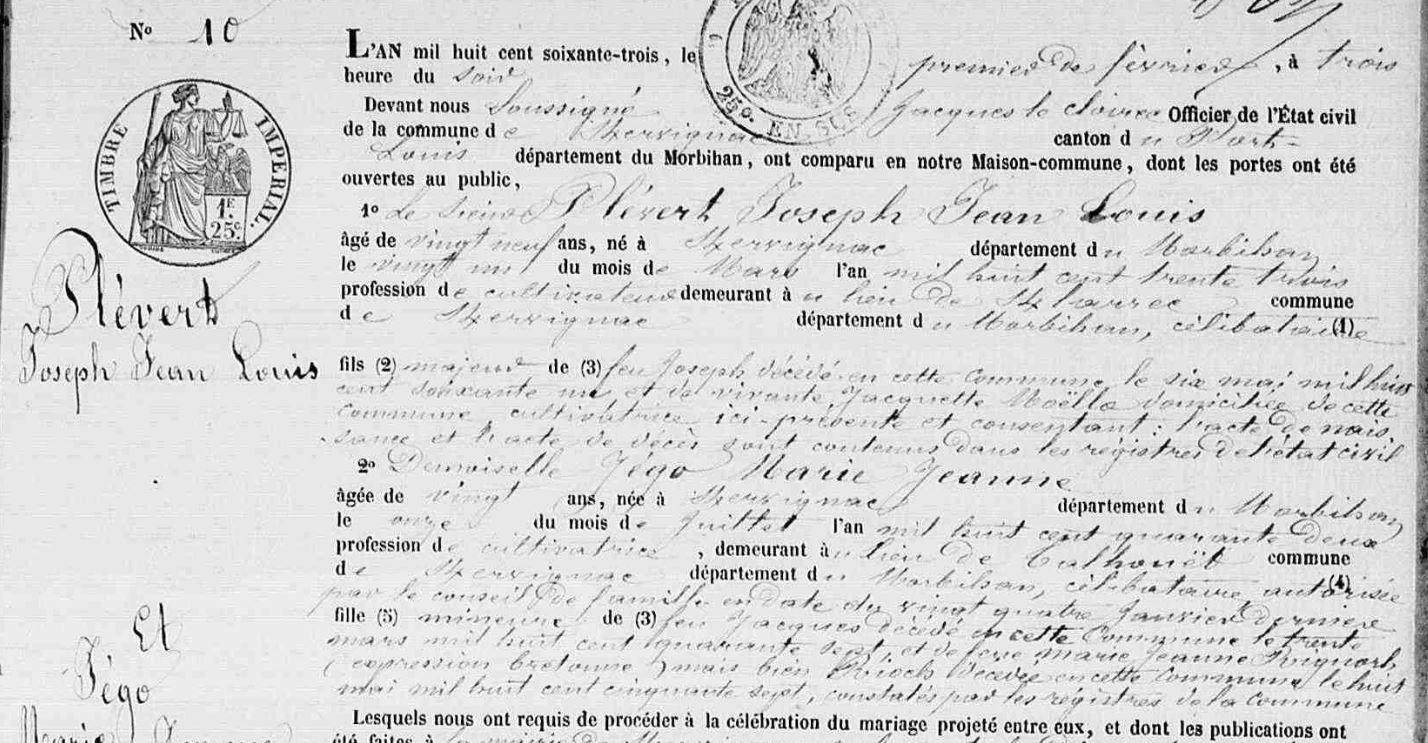 No 10
L'AN mil huit cent soixante-trois, le premier de février, à trois
heure du Soir
Devant nous Soussigné Jacques le Officier de l'État civil
de la commune de Kervignac canton du Port-
Louis département du Morbihan, ont comparu en notre Maison-commune, dont les portes ont été
ouvertes au public,
1o Le Sieur Plévert Joseph Jean Louis
âgé de vingt neuf ans, né à Kervignac département du Morbihan
le vingt un du mois de Mars l'an mil huit cent trente trois
profession de cultivateur demeurant au lieu de commune
de Kervignac département du Morbihan, célibataire (1)
fils (2) majeur de (3) feu Joseph décédé en cette commune, le six mai mil huit
cent soixante un, et de vivante, Jacquette domiciliée de cette
commune cultivatrice ici-présente et consentant : l'acte de nais
sance et l'acte de décès sont contenus dans les régistres de l'état civil
2o Demoiselle Jégo Marie Jeanne
âgée de vingt ans, née à Kervignac département du Morbihan
le onze du mois de Juillet l'an mil huit cent quarante deux
profession de cultivatrice, demeurant au lieu de Talhouët commune
de Kervignac département du Morbihan, célibataire, autorisée (4)
par le conseil de famille en date du vingt quatre Janvier dernier
fille (5) mineure de (3) feu Jacques décédé en cette commune le trente
mars mil huit cent quarante sept, et de feue marie Jeanne
(expression bretonne) mais bien décédée en cette commune le huit
mai mil huit cent cinquante sept, constatés par les régistres de la commune
Lesquels nous ont requis de procéder à la célébration du mariage projeté entre eux, et dont les publications ont
été faites à la mairie de
TIMBRE IMPERIAL.
1F.
25c.
25c. EN SUS
Plévert
Joseph Jean Louis
Et
Jégo
Marie Jeanne